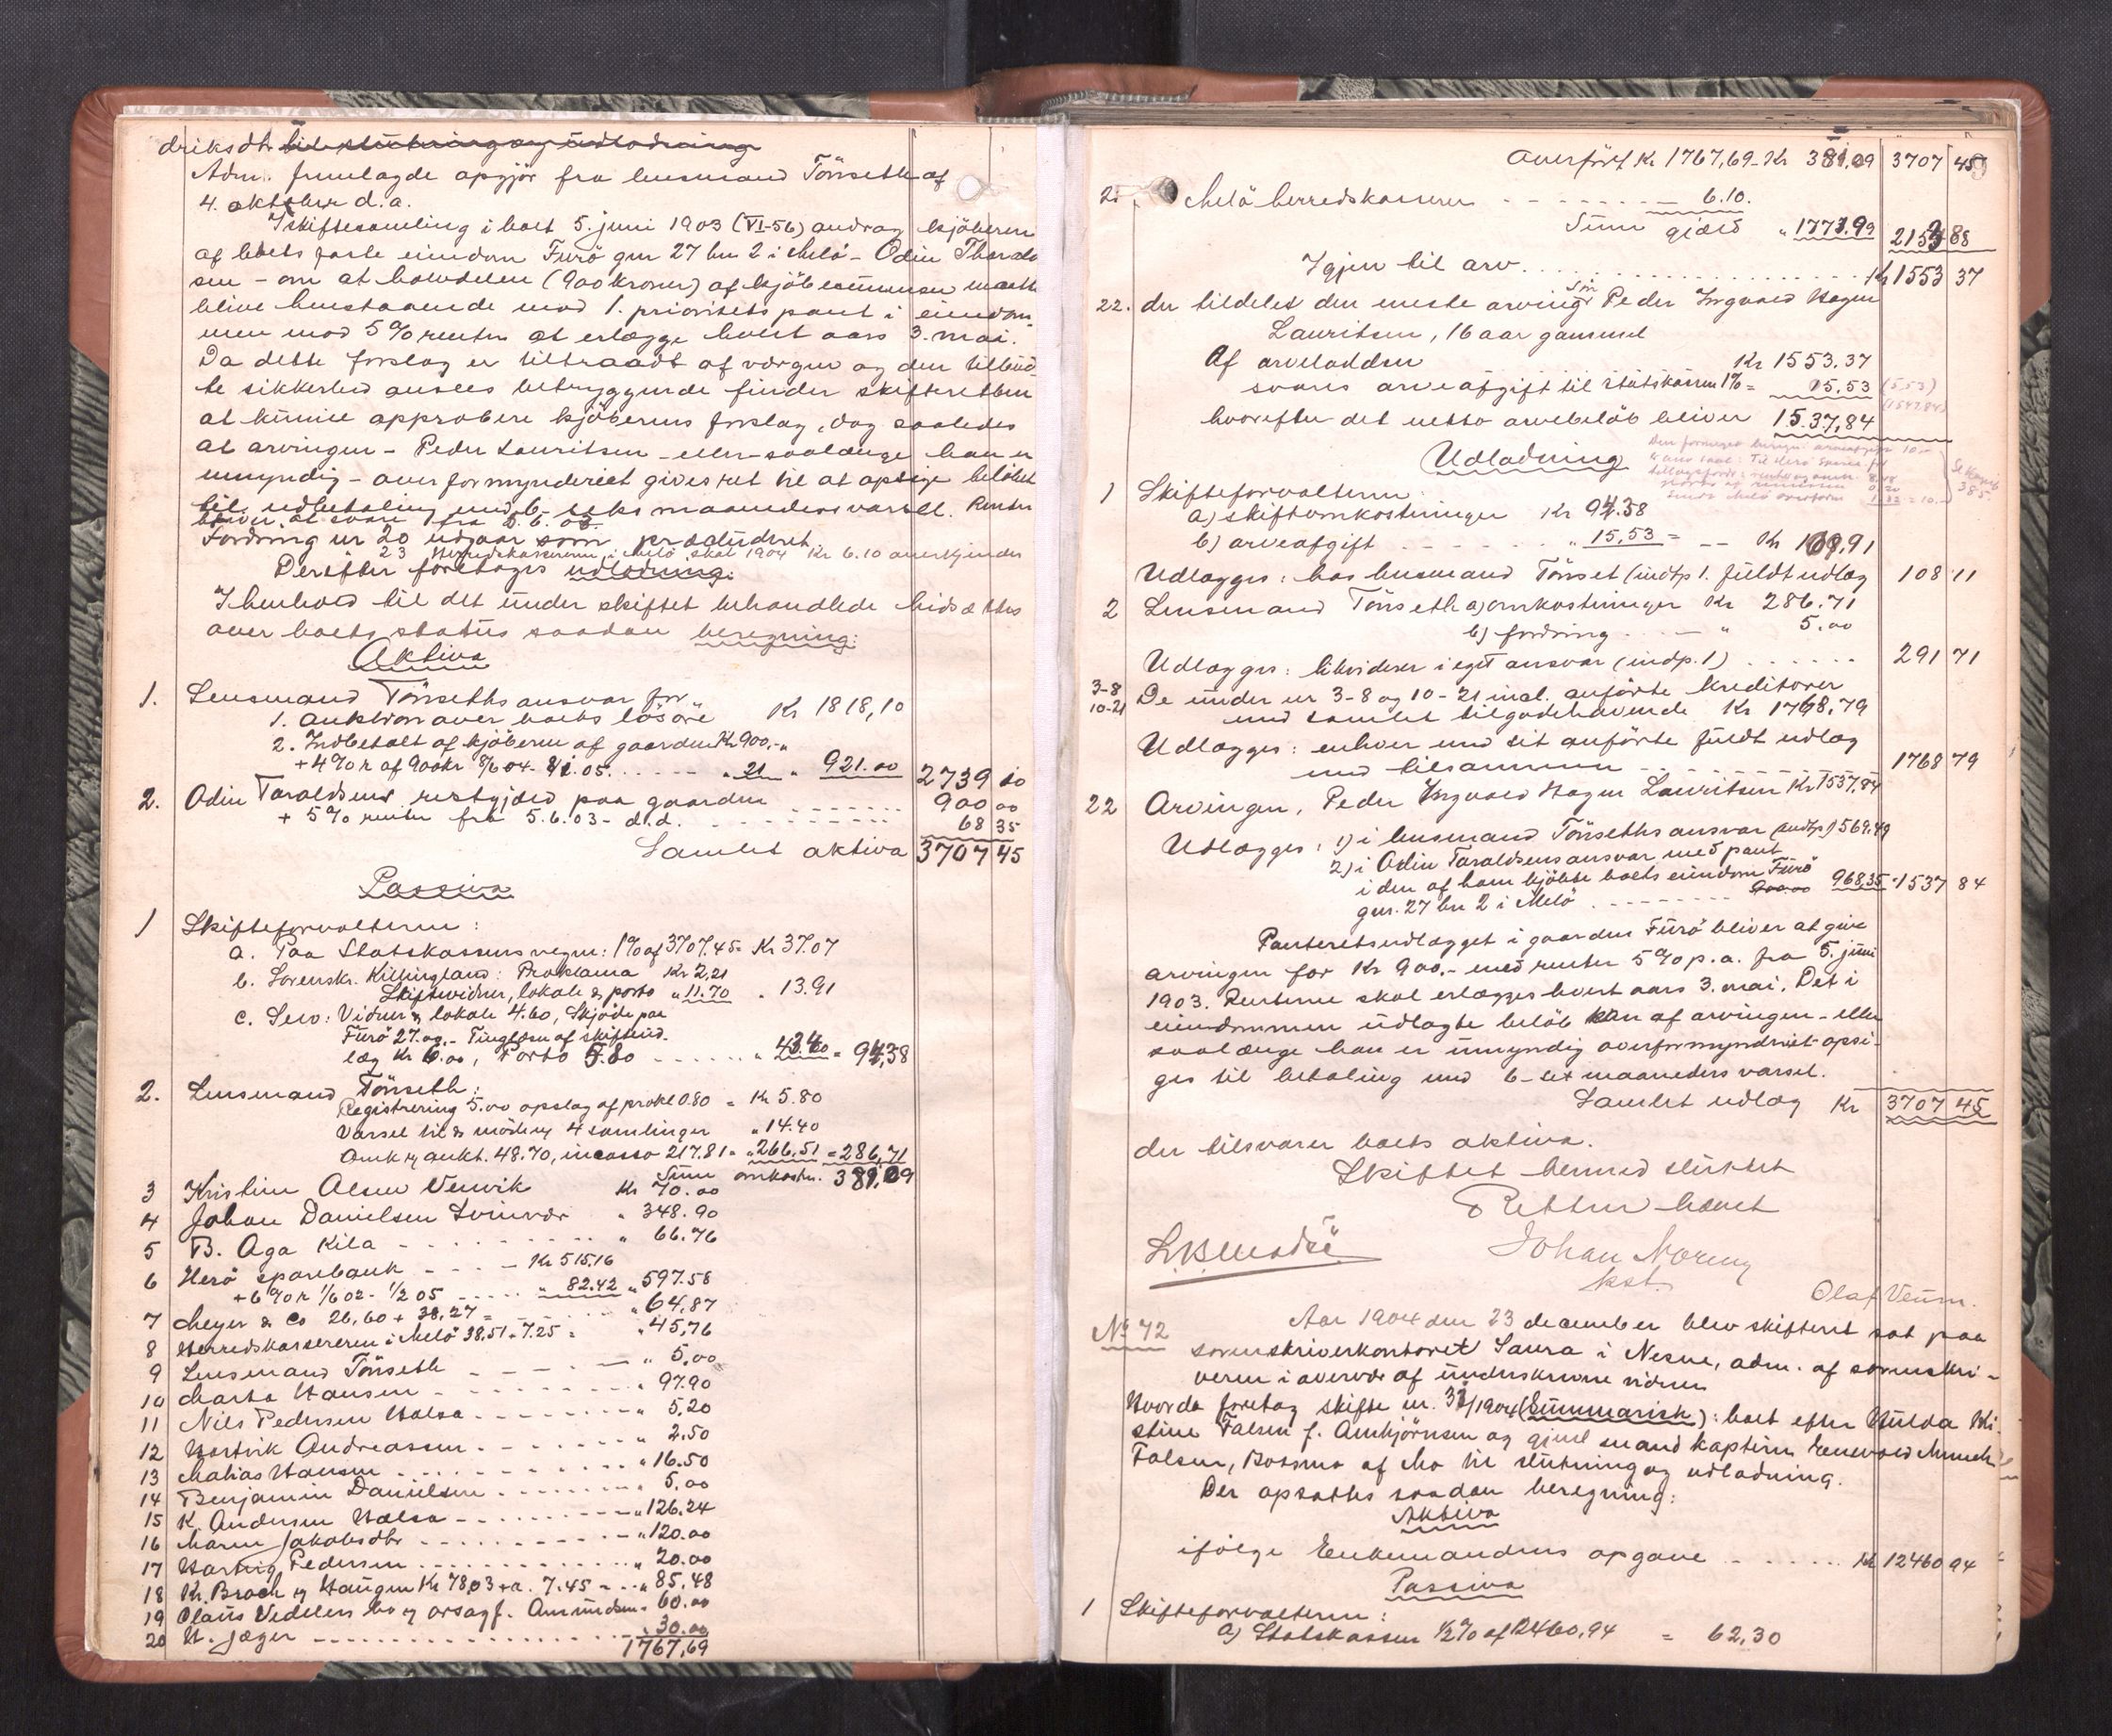 driksdtr. til slutning og udlodning
Adm. fremlagde opgjör fra lensmand Tönseth af
4. oktober d.a.
I skiftesamling i boet 5. juni 1903 (VI-56) androg kjöberen
af boets faste eiendom Furö gnr 27 bn 2 i Melö - Odin Tharald
sen - om at halvdelen (900 kroner) af kjöbesummen maatte
blive henstaaende mod 1. prioritets pant i eiendom-
men mod 5% renter at erlægge hvert aars 3. mai.
Da dette forslag er tiltraadt af værgen og den tilbud-
te sikkerhed ansees betryggende finder skifteretten
at kunne approbere kjöberens forslag, dog saaledes
at arvingen - Peder Lauritsen - eller - saalænge han er
umyndig - overformynderiet gives ret til at opsige belöbet
til udbetaling med 6 - seks maaneders varsel. Renter
bliver at svare fra 5.6.03.
Fordring nr 20 udgaar som præcluderet.
23 Herredskassereren i Melö skat 1904 Kr 6.10 anerkjendes
Derefter foretages udlodning.
I henhold til det under skiftet behandlede hidsættes
over boets status saadan beregning:
Aktiva
1. Lensmand Tönseths ansvar for
1. auktion over boets lösöre Kr 1818,10
2. Indbetalt af kjöberen af gaarden Kr 900,-
+ 4% r af 900 kr 8/6 04 - 8/1 05. " 21 " 921.00 2739 10
2. Odin Taraldsens restgjæld paa gaarden 900 00
+ 5% renter fra 5.6.03 - d.d. 68 35
Samlet aktiva 3707 45
Passiva
1 Skifteforvalteren:
a. Paa Statskassens vegne: 1% af 3707,45 = Kr 37.07
b. Sorenskr. Killingland: Proklama Kr 2,21
Skiftevidner, lokale & porto " 11.70 " 13.91
c. Selv: Vidner & lokale 4.60, Skjöde paa
Furö 27.00 - Tinglæsn af skifteud-
læg Kr 6.00, Porto 5.80 " 43.40 = 94,38
2. Lensmand Tönseth:
Registrering 5.00 opslag af prokl 0.80 = Kr 5.80
Varsel til & möde og 4 samlinger " 14.40
Omk og aukt. 48.70, incasso 217.81 = " 266.51 = 286,71
Sum omkostn. 381,09
3 Kristine Olsen Venvik Kr 70.00
4 Johan Danielsen Svinvær " 348.90
5 B. Aga Kila " 66.76
6 Herö sparebank Kr 515,16
+ 6% r 1/6 02 - 1/2 05 " 82.42 " 597.58
7 Meyer & Co 26,60 + 38,27 = " 64,87
8 Herredskassereren i Melö 38,51 + 7.25 = " 45,76
9 Lensmand Tönseth " 5,00
10 Marta Hansen " 97.90
11 Nils Pedersen Halsa " 5,20
12 Hartvik Andreassen " 2.50
13 Mathias Hansen " 16.50
14 Benjamin Danielsen " 5.00
15 K. Andersen Halsa " 126.24
16 Maren Jakobsdtr " 120.00
17 Hartvig Pedersen " 20.00
18 Kr. Broch og Haugen Kr 78,03 + a. 7.45 = " 85,48
19 Olaus Vedelers bo og orsagf. Amundsen " 60.00
20 H. Jæger " 30.00
1767,69
Overfört Kr 1767,69 - Kr 381,09 3707 45
2. Melö herredskasserer 6.10.
Sum gjæld " 1773.99 2153 88
Igjen til arv Kr 1553 37
22. der tildeles den eneste arving Sön Peder Ingvald Hagen
Lauritsen, 16 aar gammel
Af arvelodden Kr 1553,37
svares arveafgift til statskassen 1% = 15.53 (5.53)
hvorefter det netto arvebelöb bliver 1537,84 (1547,84)
Udlodning
1 Skifteforvalteren:
a) skifteomkostninger Kr 94.38
b) arveafgift " 15,53 = Kr 109,91
Udlægges: hos lensmand Tönset (indtp 1. fuldt udlæg 108 11
2 Lensmand Tönseth a) omkostninger Kr 286.71
b) fordring " 5.00
Udlægges: likvideres i eget ansvar (indp. 1) 291 71
3-8 De under nr 3-8 og 10-21 incl. anförte kreditorer
10-21 med samlet tilgodehavende Kr 1768,79
Udlægges: enhver med sit anförte fuldt udlæg
med tilsammen 1768 79
22 Arvingen, Peder Ingvald Hagen Lauritsen Kr 1537,84
Udlægges: 1) i lensmand Tönseths ansvar (indtp 1) 569,49
2) i Odin Taraldsens ansvar med pant
i den af ham kjöbte boets eiendom Furö
gnr. 27 bn 2 i Melö 900.00 968,35 " 1537 84
Panteretsudlægget i gaarden Furö bliver at give
arvingen for Kr 900.- med renter 5% p.a. fra 5. juni
1903. Renterne skal erlægges hvert aars 3. mai. Det i
eiendommen udlagte belöb kan af arvingen - eller
saalænge han er umyndig overformynderiet - opsi-
ges til betaling med 6 - sex maaneders varsel.
Samlet udlæg Kr 3707 45
der tilsvarer boets aktiva.
Skiftet hermed sluttet
Retten hævet
Johan Noreng
kst.
Olaf Venn.
No 72 Aar 1904 den 23 december blev skifteret sat paa
sorenskriverkontoret Saura i Nesne, adm. af sorenskri-
veren i overvær af underskrevne vidner
Hvorda foretog skifte nr. 32/1904 (Summarisk): boet efter Hulda Kri-
stine Falsen f. Arnbjörnsen og gjenl. mand kaptein Enevold Munch
Falsen, Bossmo af Mo til slutning og udlodning.
Der opsattes saadan beregning:
Aktiva
ifölge Enkemandens opgave Kr 12460 94
Passiva
1 Skifteforvalteren:
a) Statskassen 1/2% af 12460,94 = 62,30